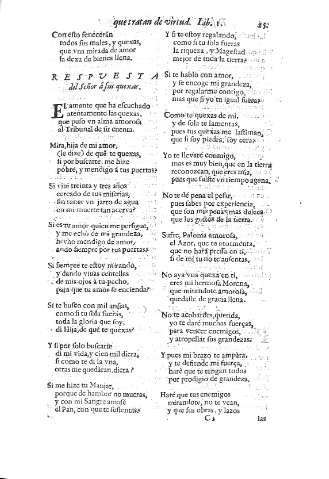 que tratan de virtud. Lib. 1. 25.
Con esto fenecerán
todos sus males, y quexas,
que vna mirada de amor
la dexa de bienes llena.
RESPVESTA
del Señor à sus quexas.
EL amante que ha escuchado
atentamente las quexas,
que puso vn alma amorosa
al Tribunal de su cuenta.
Mira, hija de mi amor,
(le dize) de què te quexas,
si por buscarte me hize
pobre, y mendigo à tus puertas?
Si viui treinta y tres años
cercado de tus miserias,
sin tener vn jarro de agua
en mi muerte
Si es tu amor quien me persigue,
y me
hecho mendigo de amor,
ando siempre por tus puertas?
Si siempre te estoy mirando,
y dando viuas centellas
de mis ojos à tu pecho,
para que tu amor se encienda?
Si te busco con mil ansias,
como si tu sola fueras,
toda la gloria que soy,
di Hija, de què te quexas?
Y si por solo buscarte
di mi vida, y cien mil diera,
si como te di la vna,
otras me quedaran, diera?
Si me hize tu Manjar,
porque de hambre no mueras,
y con mi Sangre amasè
el Pan, con que te sustentas?
Y si te estoy regalando,
como si tu sola fueras
la riqueza, y Magestad
mejor de toda la tierra?
Si te hablo con amor,
y se encoge mi grandeza,
por regalarme contigo,
mas que si yo tu igual fuera?
Como te quexas de mi,
y de sola te lamentas,
pues tus quexas me lastiman,
que si soy piedra, soy cera?
Yo te lleuarè conmigo,
mas es muy bien, que en la tierra
reconozcas, que eres mia,
pues que fuiste vn tiempo agena.
No te dè pena el pesar,
pues sabes por experiencia,
que son mis penas mas dulces
que los gustos de la tierra.
Sufre, Paloma amorosa,
el Azor, que te atormenta,
que no harà presa en ti,
si de mi tu no te ausentas.
No aya vna quexa en ti,
eres mi hermosa Morena,
que mirandote amorosa,
quedaste de gracia llena.
No te acobardes, querida,
yo te darè muchas fuerças,
para vencer enemigos,
y atropellar sus grandezas.
Y pues mi brazo te ampara,
y te defiende mi fuerça,
harè que te tengan todos
por prodigio de grandeza.
Harè que tus enemigos
mirandote, no te vean,
y que sus obras, y lazos
C 3 las